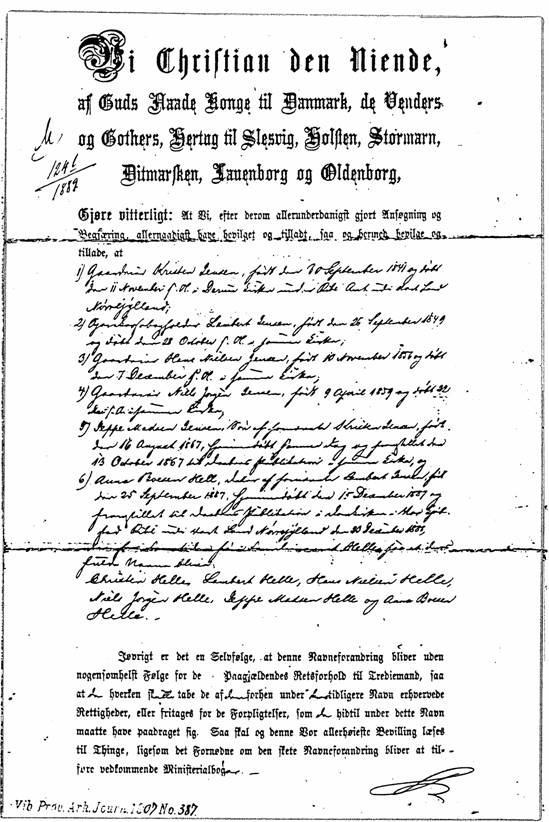 Vi Christian den Niende,
af Guds Naade Konge til Danmark, de Venders
og Gothers, Hertug til Slesvig, Holsten, Stormarn,
Ditmarsken, Lauenborg og Oldenborg,
1241
1889
Gjøre vitterligt: At Vi, efter derom allerunderdanigst gjort Ansøgning og
Begjæring, allernaadigst have bevilget og tilladt, saa og herved bevilge og
tillade, at
1) Gaardeier Kristen Jensen, født den 30 September 1841 og døbt
den 11 November s. A. i Kirke under Ribe Amt
Nørrejylland;
2) Lambert Jensen, født den 26 September 1849
og døbt den 28 October s. A. i samme Kirke;
3) Gaardeier Hans Nielsen Jensen, født 10 November 1856 og døbt
den 7 December s. A. i samme Kirke;
4) Gaardeier Niels Jørgen Jensen, født 9 April 1859 og døbt 22
s. A. i samme Kirke,
5) Jeppe Madsen Jensen, Søn af fornævnte Kristen Jensen, født
den 16 August 1867, hjemmedøbt samme Dag og fremstillet den
13 October 1867 til Daabens Publikation i samme Kirke, og
6) Anna Helle, Datter af fornævnte Lambert Jensen, født
den 25 September 1887, hjemmedøbt den 15 December 1887 og
fremstillet til Daabens Publikation i
Ribe Nørrejylland den
Helle, saa at deres
fulde Navne blive:
Christen Helle, Lambert Helle, Hans Nielsen Helle,
Niels Jørgen Helle, Jeppe Madsen Helle og Anna
Helle. -
Iøvrigt er det en Selvfølge, at denne Navneforandring bliver uden
nogensomhelst Følge for de Paagjældendes Retsforhold til Trediemand, saa
at de hverken skulle tabe de af dem forhen under tidligere Navn erhvervede
Rettigheder, eller fritages for de Forpligtelser, som de hidtil under dette Navn
maatte have paadraget sig. Saa skal og denne Vor allerhøieste Bevilling læses
til Thinge, ligesom det Fornødne om den skete Navneforandring bliver at til-
føre vedkommende Ministerialbog.
Vib Prov. Ark. Journ. 1907 No. 387.